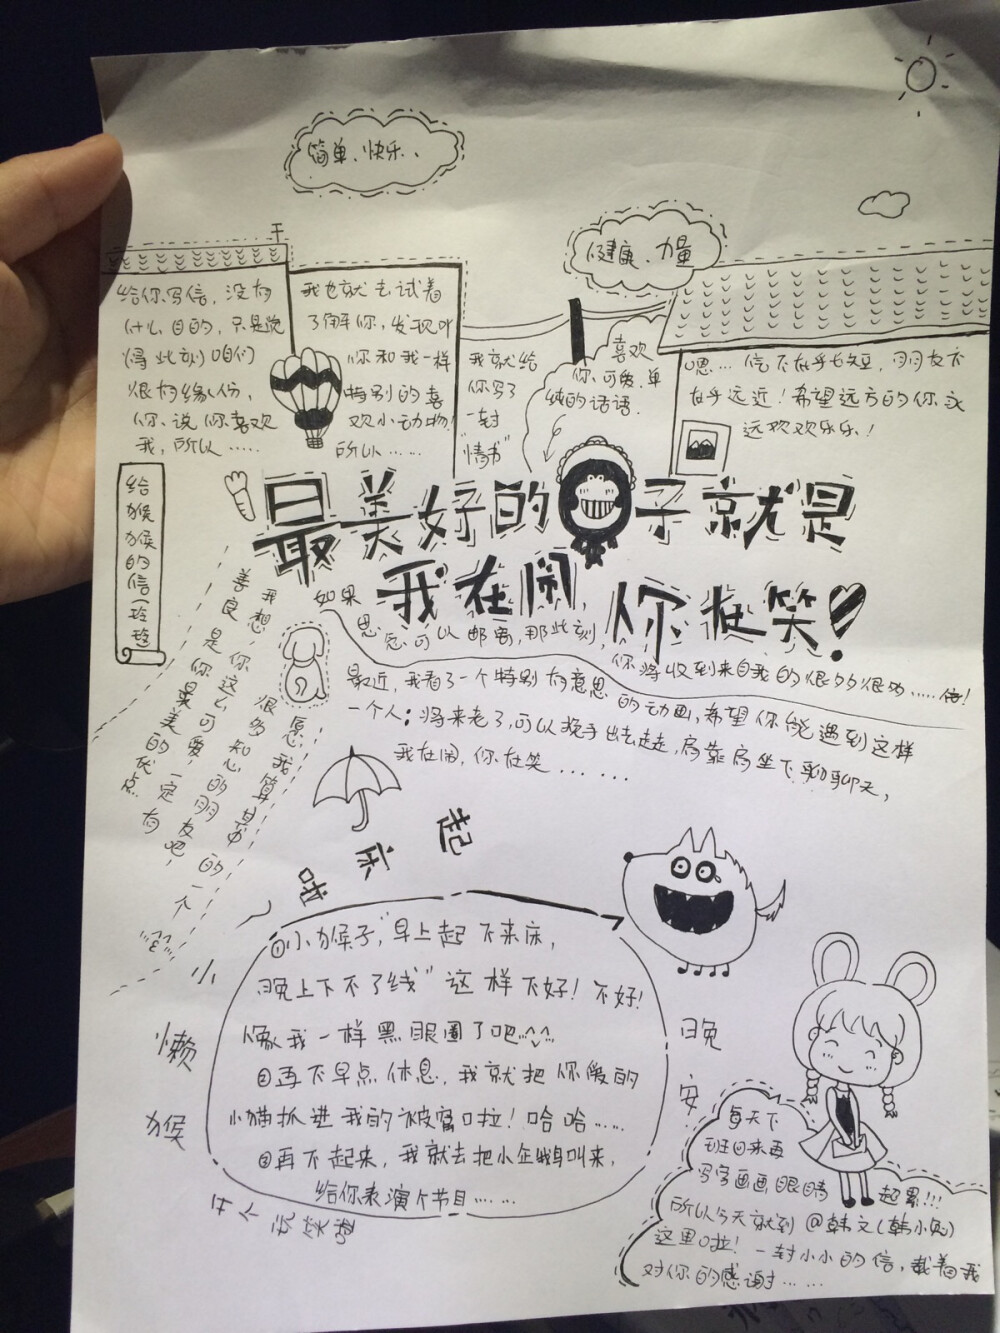 简单、快乐、
健康、力量
给你写信，没有
什么目的，只是觉
得此刻咱们
很有缘份，
你说你喜欢
我，所以……
我也就去试着
了解你，发现
你和我一样
特别的喜
欢小动物！
所以……
我就给
你写了
一封
“情书”
喜欢
你、可爱、单
纯的话语.
嗯…信不在乎长短，朋友不
在乎远近！希望远方的你永
远欢欢乐乐！
给猴猴的信（玲玲
最美好的日子就是
我在闹，你在笑！
如果思念可以邮寄，那此刻，你将收到来自我的很多很多……信！
最近，我看了一个特别有意思的动画，希望你能遇到这样
一个人；将来老了，可以挽手出去走走，肩靠肩坐下聊聊天，
我在闹，你在笑……
我想，你这么可爱，一定有
很多知心的朋友吧，
愿我算其中的一个
善良是你最美的优点
起床啦
①小猴子“早上起不来床，
晚上下不了线”这样不好！不好！
像我一样黑眼圈了吧…^_^
②再不早点休息，我就把你爱的
小猫抓进我的被窝啦！哈哈……
③再不起来，我就去把小企鹅叫来，
给你表演个节目……
小
懒
猴
晚
安
每天下
班回来再
写字画画，眼睛
起累!!!
所以今天就到@韩文（韩小兔）
这里啦！一封小小的信，载着我
对你的感谢……